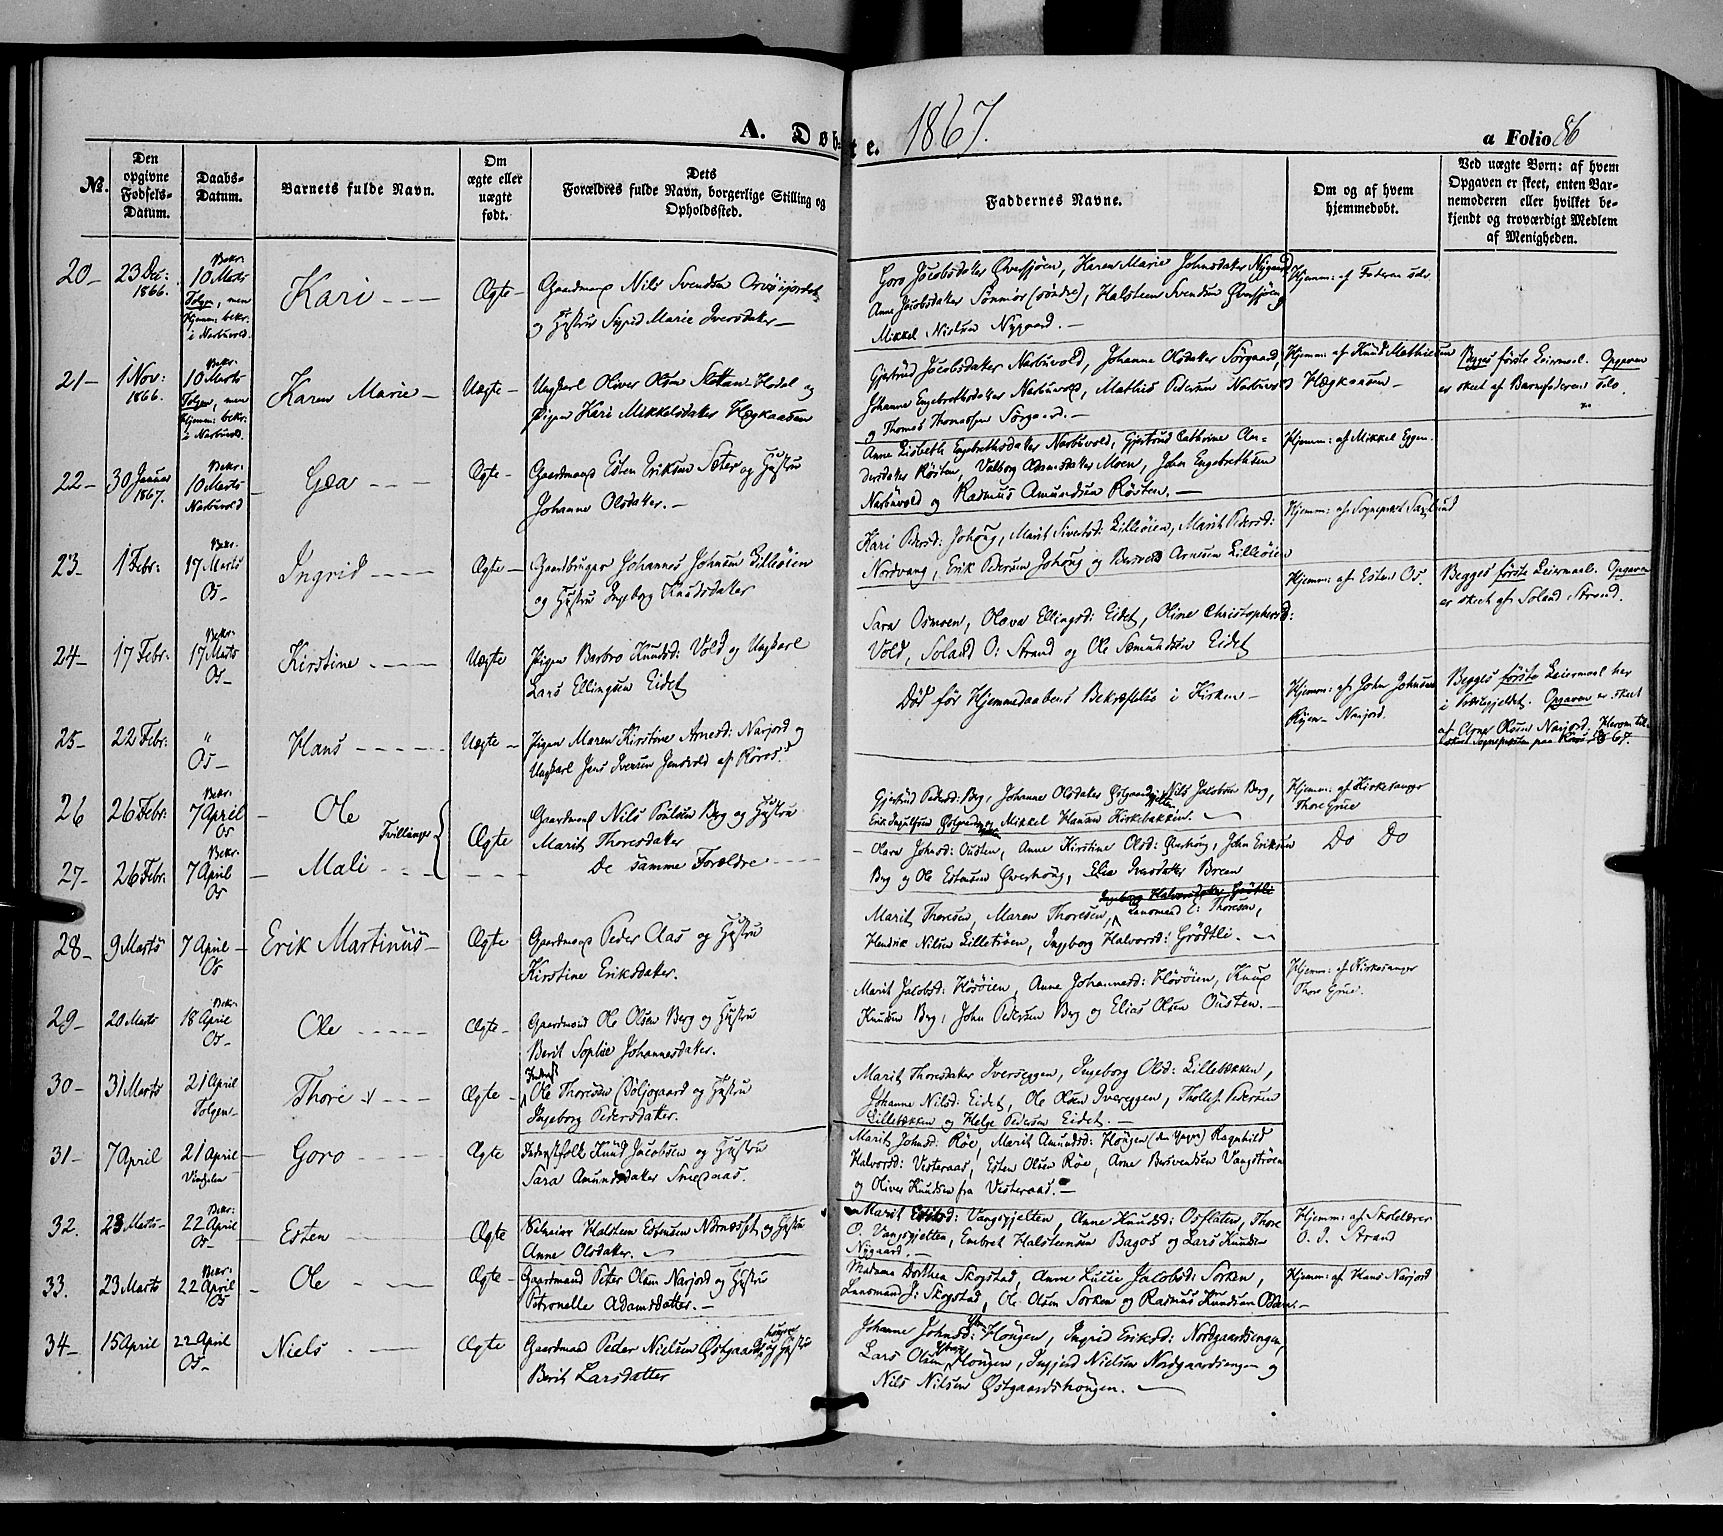 A. Døbte. 1867. a Folio 86
No.
Den opgivne Fødsels-Datum.
Daabs-Datum.
Barnets fulde Navn.
Om ægte eller uægte født.
Dets Forældres fulde Navn, borgerlige Stilling og Opholdssted.
Faddernes Navne.
Om og af hvem hjemmedøbt.
Ved uægte Børn: af hvem Opgaven er skeet, enten Barnemoderen eller hvilket bekjendt og troværdigt Medlem af Menigheden.
20 – 23 Dec: 1866.
Bekr: 10 Marts Tolgen, men Hjemm: bekr: i Narbuvold.
Kari
Ægte –
Gaardmand Nils Svendsen
og Hustru Sigrid Marie Iversdatter –
Goro Jacobsdatter Øversjøen, Karen Marie Johnsdatter Nygaard
Anne Jacobsdatter Sönmör (söndre), Halsteen Svendsen Øversjøen
Mikkel Nielsen Nygaard. –
Hjemm: af Faderen selv
21 – 1 Nov: 1866.
Bekr: 10 Marts Tolgen, men Hjemm: bekr: i Narbuvold.
Karen Marie –
Uægte –
Ungkarl Oliver Olsen og
Pigen Kari Mikkelsdatter Hægkaasen
Gjertrud Jacobsdatter Narbuvold, Johanne Olsdatter Sorgaard,
Johanne Engebrethsdatter Narbuvold, Mathis Pedersen Narbuvold
og Thomas Thomassen Sorgaard. –
Hjemm: af Knud Mathiesen
Hægkaasen –
Begges første Leiermaal. Opgaven
er skeet af Barnefaderen selv.
22 – 30 Januar 1867.
Bekr: 10 Marts Narbuvold
Gea
Ægte –
Gaardmand Esten Eriksen Sæter og Hustru
Johanne Olsdatter. –
Anne Lisbeth Engebrethsdatter Narbuvold, Gjertrud Cathrine An-
dersdatter Røsten, Valborg Adamsdatter Moen, John Engebrethsen
Narbuvold og Rasmus Amundsen Røsten. –
Hjemm: af Mikkel Eggen.
23 – 1 Febr:
Bekr: 17 Marts Os –
Ingrid
Ægte –
Gaardbruger Johannes Johnsen Lilleøien
og Hustru Ingeborg Knudsdatter
Kari Pedersd: Johaug, Marit Sivertsd: Lilleøien, Marit Pedersd:
Nordvang, Erik Pedersen Johaug og Bersvend Arnesen Lilleøien
Hjemm: af Sognepræst
24 – 17 Febr:
Bekr: 17 Marts Os –
Kirstine
Uægte
Pigen Barbro Knudsd: Vold og Ungkarl
Lars Ellingsen Eidet
Sara Osmoen, Olava Ellingsd: Eidet, Oline Christophersd:
Vold, Soland O: Strand og Ole Semundsen Eidet
Hjemm: af Esten Os.
Begges første Leiermaal. Opgaven
er skeet af Soland Strand.
25 – 22 Febr:
" Os –
Hans
Uægte –
Pigen Maren Kirstine Arnesd: Narjord og
Ungkarl Jens Iversen af Röros.
Död før Hjemmedaabens Bekræftelse i Kirken –
Hjemm: af John Johnsen
Röjen – Narjord.
Begges første Leiermaal her
i Præstegjeldet. Opgaven er skeet
af Arne Olsen Narjord. Herom til-
skrevet Sognepræsten paa Röros 67.
26 26 Febr:
Bekr: 7 April Os
Ole
Tvillinger
Ægte
Gaardmand Nils Poulsen Berg og Hustru
Marit Thoresdatter
Gjertrud Pedersd: Berg, Johanne Olsdatter Østgaard, Nils Jacobsen Berg,
Erik Østgaard og Mikkel Hansen Kirkebakken.
Hjemm: af Kirkesanger
Thore Grue
27 – 26 Febr:
Bekr: 7 April Os
Mali
De samme Forældre
Olava Johnsd: Ousten, Anne Kirstine Olsd: Øverhoug, John Eriksen
Berg og Ole Estensen Øverhoug, Elia Iversdatter Breen
Do Do
28 – 9 Marts
7 April – Os
Erik Martinus –
Ægte
Gaardmand Peder Aas og Hustru
Kirstine Eriksdatter.
Ingeborg Halvorsdatter Grödtli
Marit Thoresen, Maren Thoresen, Lensmand E: Thoresen,
Hendrik Nilsen Lilletrøen, Ingeborg Halvorsd: Grödtli. –
29 – 20 Marts
Bekr: 18 April Os –
Ole
Ægte –
Gaardmand Ole Olsen Berg og Hustru
Berit Sophie Johannesdatter.
Marit Jacobsd: Hosöien, Anne Johannesd: Hosöien, Knud
Knudsen Berg, John Pedersen Berg og Elias Olsen Ousten. –
Hjemm: af Kirkesanger
Thore Grue.
30 – 31 Marts
21 April Tolgen –
Thore
Ægte –
Inderst
Ole Thoresen Döljegaard og Hustru
Ingeborg Pedersdatter.
Marit Thoresdatter Iverseggen, Ingeborg Olsd: Lillebækken,
Johanne Nilsd: Eidet, Ole Olsen Ivereggen, Thollef Pedersen
Lillebækken og Helge Pedersen Eidet. –
31 – 7 April
21 April Vingelen
Goro
Ægte
Inderstfolk Knud Jacobsen og Hustru
Sara Amundsdatter
Marit Johnsd: Röe, Marit Amundsd: Hougen (den yngre) Ragnhild
Halvorsd: Vesteraas, Esten Olsen Röe, Arne Bersvendsen Vangströen
og Oliver Knudsen fra Vesteraas. –
32. 23 Marts –
Bekr: 22 April Os –
Esten
Ægte
Selveier Halsten Estensen og Hustru
Anne Olsdatter.
Marit Estensd: Vangsgjelten, Anne Knudsd: Osflaten, Thore
O. Vangsgjelten, Embret Halsteensen Bagos og Lars Knudsen
Nygaard. –
Hjemm: af Skolelærer
O. J. Strand
33. 23 Marts
Bekr: 22 April Os
Ole
Ægte –
Gaardmand Peter Olsen Narjord og Hustru
Petronelle Adamsdatter. –
Madame Dorthea Skogstad, Anne Lucie Jacobsd: Sorken,
Lensmand J: Skogstad, Ole Olsen Sorken og Rasmus Knudsen
Hjemm: af Hans Narjord
34 – 15 April
22 April Os –
Niels
Ægte
Gaardmand Peder Nielsen Østgaardshougen og Hustru
Berit Larsdatter
Johanne Johnsd: Hougen, Ingrid Eriksd: Nordgaardsengen,
Lars Olsen Hougen, Ingjerd Nielsen Nordgaardsengen og
Nils Nilsen Østgaardshougen. –